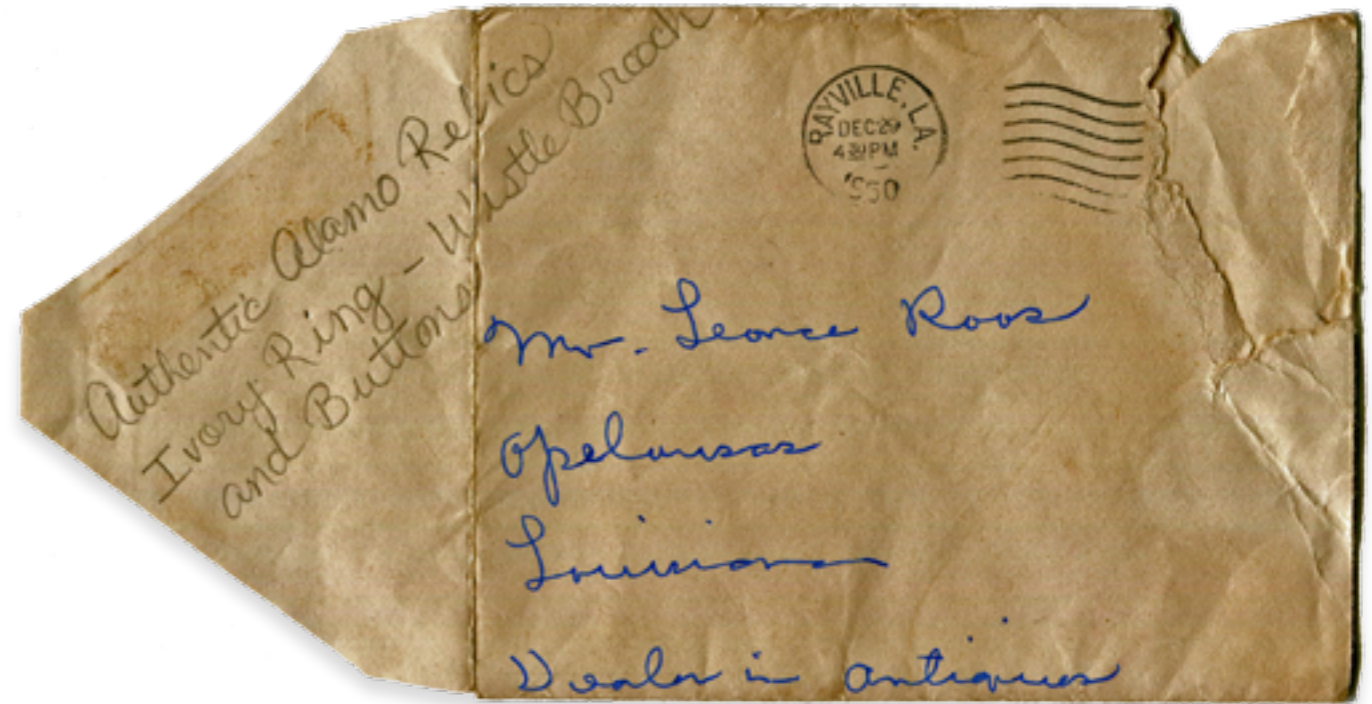 Authentic Alamo Relics
Ivory Ring - Wistle Brooch
and Buttons
RAYVILLE, LA.
DEC 29
PM
1950
Mr. Leonce Roos
Opelousas
Louisiana
Dealer in antiques